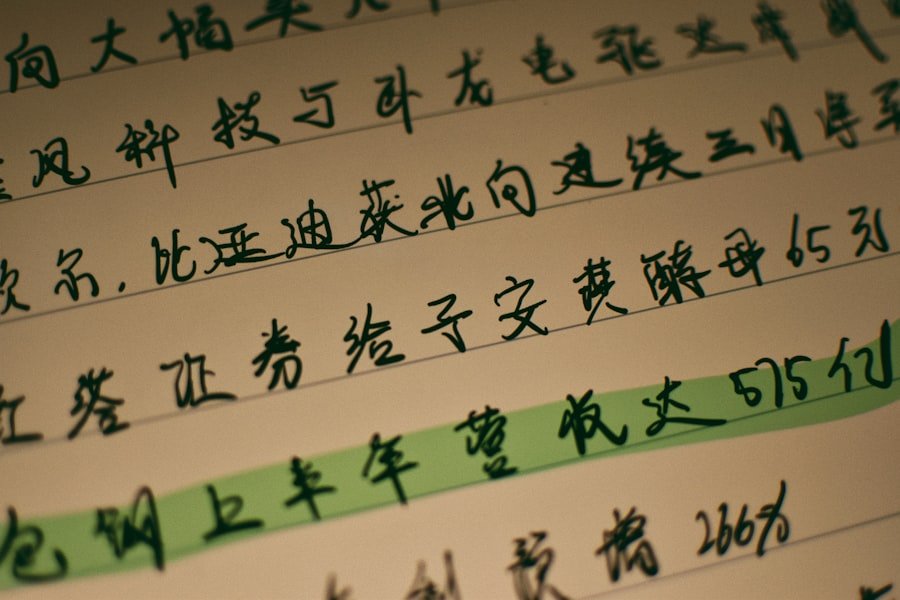 向大幅买
风科技与卧龙电驱达
尔,比亚迪获北向连续三月净买
红塔证券给予安琪酵母65元
包钢上半年营收达575亿
利预增266%